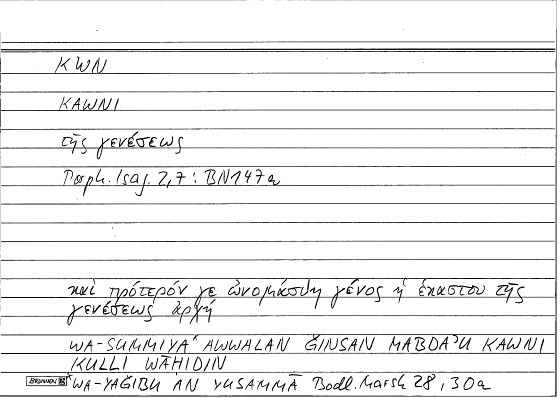 KWN
KAWNI
τῆς γενέσεως
Porph. Isag. 2,7 : BN 147a
καὶ πρότερόν γε ὠνομάσθη γένος ἡ ἑκάστου τῆς
γενέσεως ἀρχή
WA-SUMMIYA* AWWALAN ǦINSAN MABDAʾU KAWNI
KULLI WĀḤIDIN
BRUNNEN *WA-YAǦIBU AN YUSAMMĀ Bodl. Marsh 28, 30a